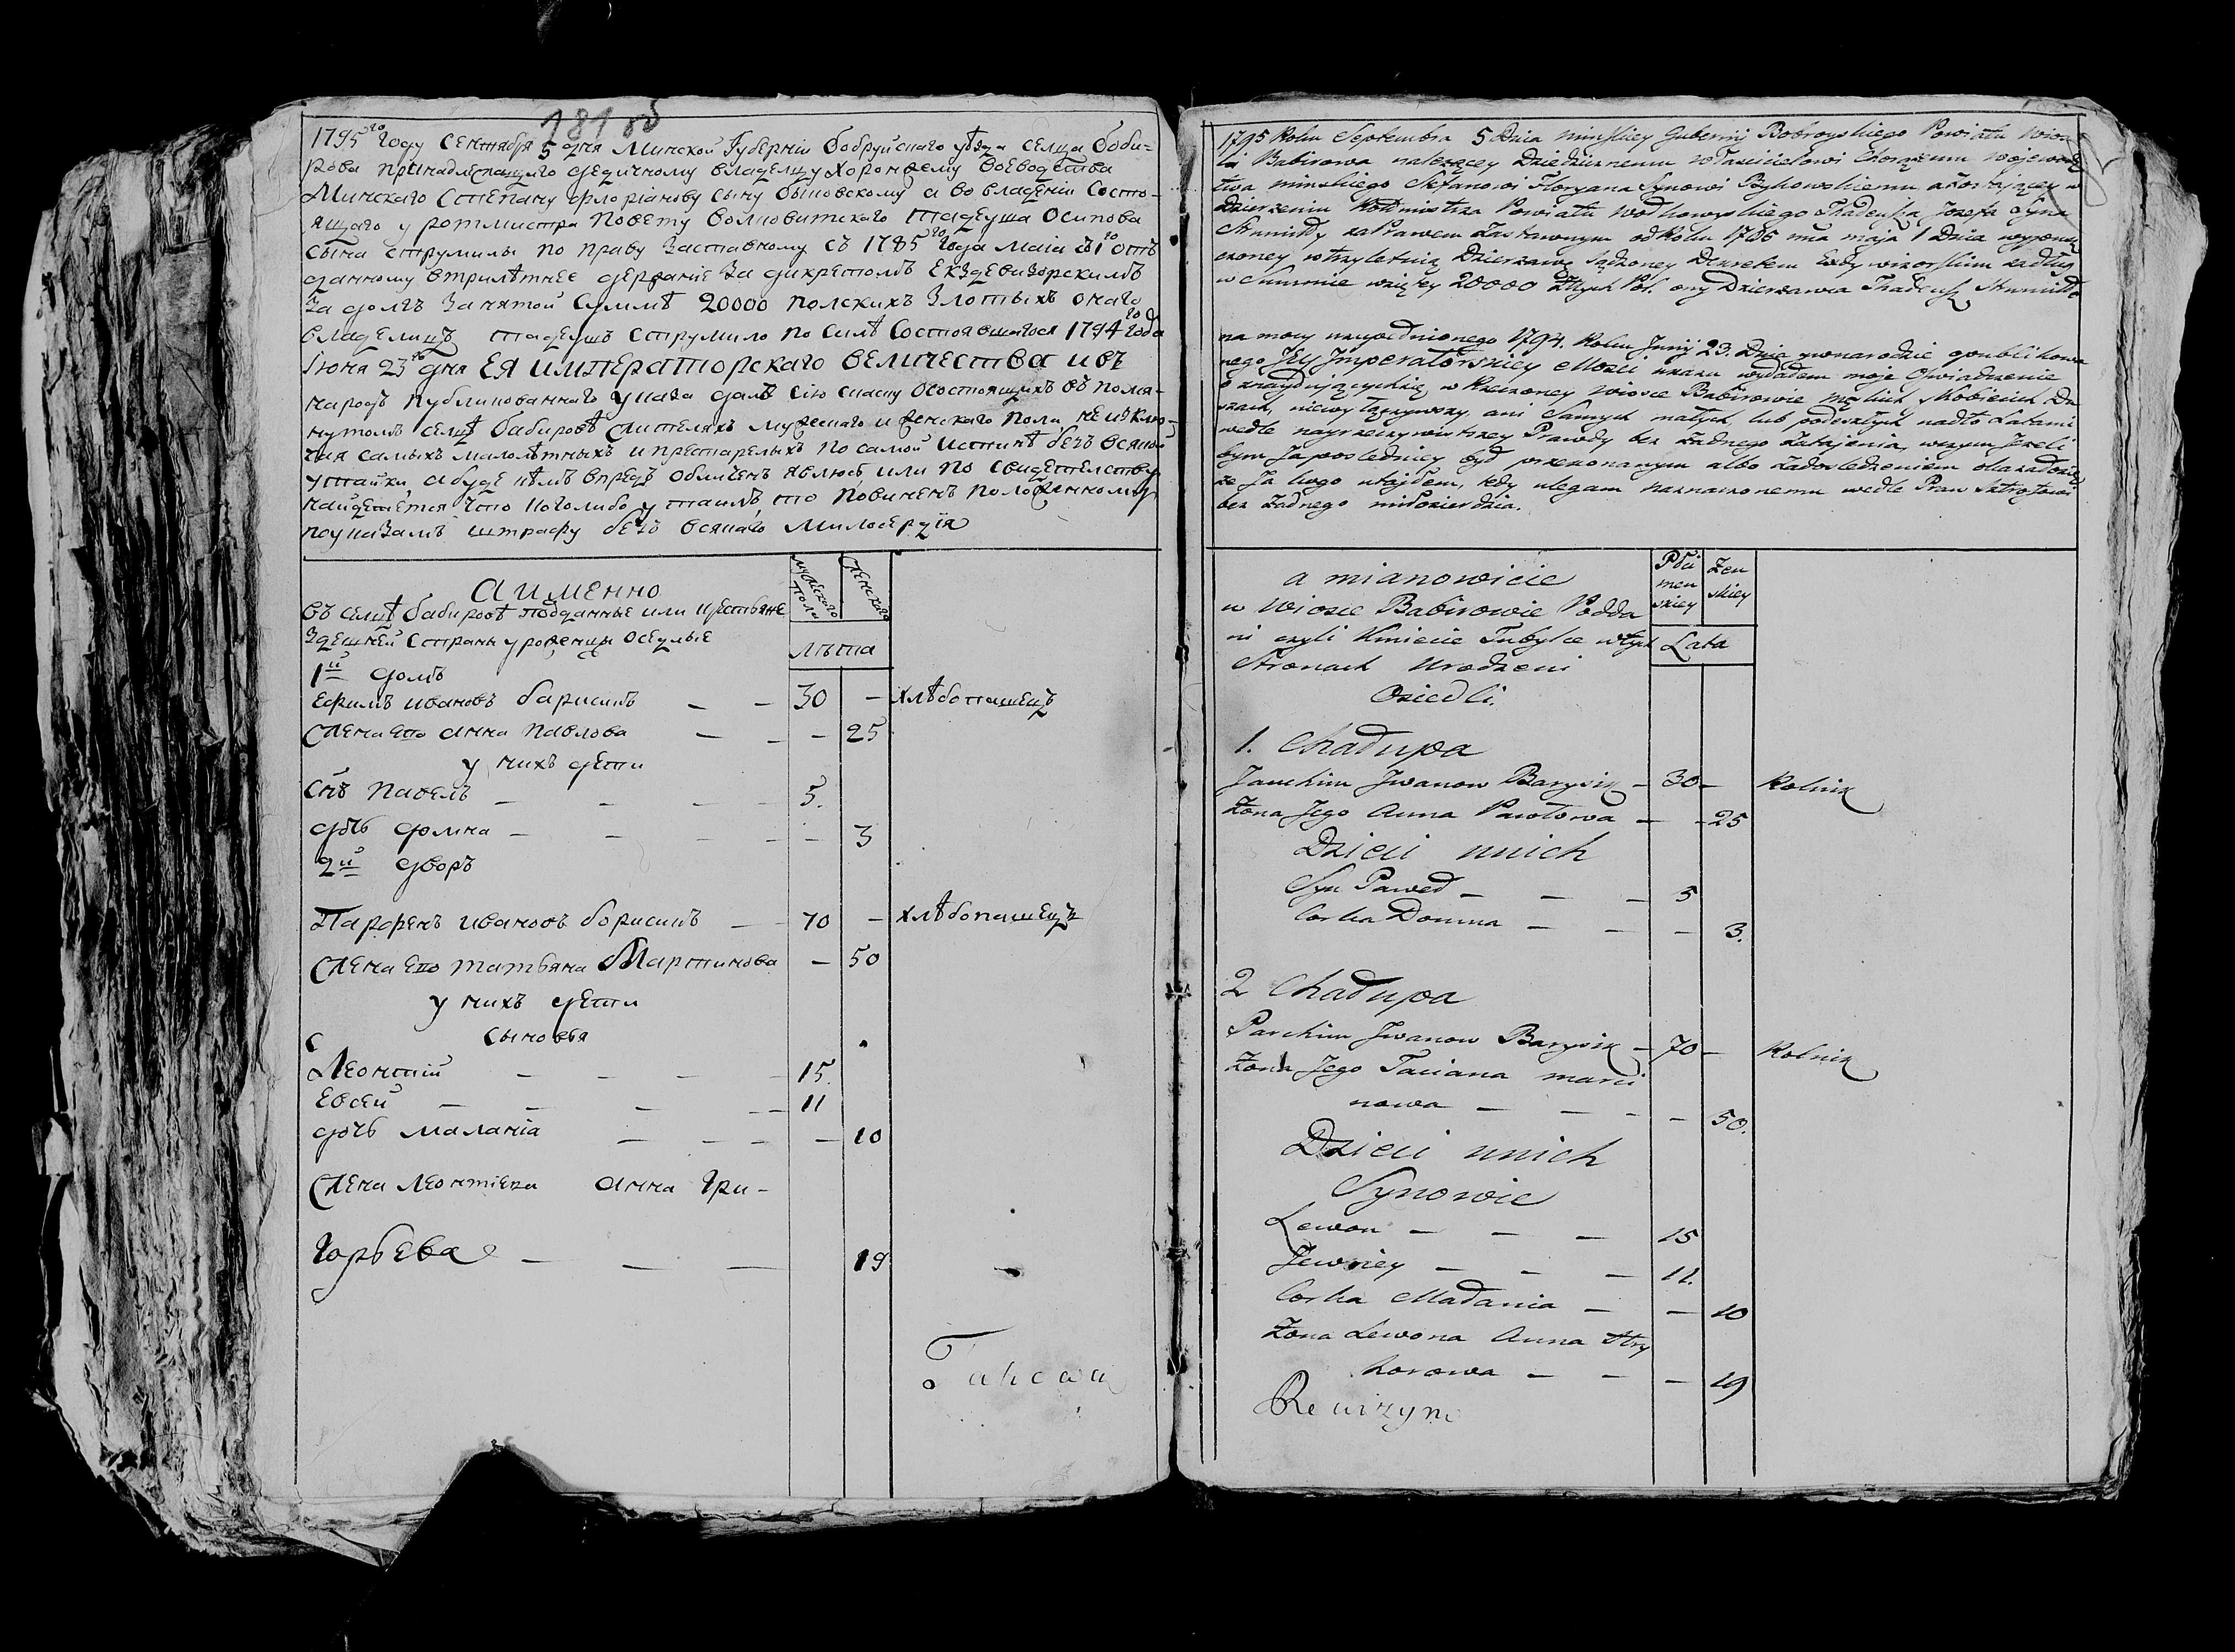 181 об
1795го году Сентября 5 дня Минской Губерніи Бобруйского уѣзда селца Боби-
рова принадлежащаго дедичному владелцу Хоронжему Воеводства
Минскаго Степану Флоріанову сыну Быковскому а во владеніи состо-
ящаго у ротмистра Повету Волковитского Тадеуша Осипова
сына Струмилы по праву Заставному съ 1785го года Маія 1го отъ
данному втрилѣтнее держаніе За дикретомъ Екздевизорскимъ
За долгъ Занятой суммѣ 20000 полскихъ Злотыхъ онаго
владелицъ Тадеушъ Струмило по силѣ Состоявшагося 1794го года
Iюня 23го дня ЕЯ императорскаго величества изъ
народъ публикованнаго указа далъ сію скаску осостоящихъ въ помя-
нутомъ селцѣ бабировѣ жителяхъ мужескаго и женскаго пола не изклю-
чая самыхъ малолѣтныхъ и престарелыхъ по самой истиннѣ безъ всякой
утайки, а буде кѣмъ впредъ обличенъ явлюсь, или по свидетелству
найдется что кого либо утаилъ, то повиненъ положенному
поуказамъ штрафу безъ всякаго милосердія
а именно
въ селцѣ бабировѣ подданные или крестьяне
здешней страны уроженцы оседлые
мужескаго пола
женскаго
лѣта
1й домъ
Ефимъ ивановъ барисикъ — — 30 — хлѣбопашецъ
жена его анна павлова — — — 25
у нихъ дети
Снъ павелъ — — — — 5.
дочь домна — — — — — 3
2й дворъ
Парфенъ ивановъ борисикъ — — 70 — хлѣбопашецъ
жена его татьяна Мартинова — 50
у нихъ дети
сыновья
Леонтій — — — — 15.
Евсей — — — — 11
дочь маланіа — — — — 10
жена леонтіева анна гри-
горьева — — — 19
1795 Roku Septembra 5 Dnia Minskiey Gubernij Bobroyskiego Powiatu wios-
ki Babirowa nalezącey Dziedzicznemu właścicielowi Chorążemu wojewodz
twa minskiego Stefanowi Floryana Synowi Bykowskiemu a zostającey w
Dzierzeniu Rotmistrza Powiatu Wołkowyskiego Thadeusza Jozefa Syna
Strumiłły za Prawem Zastawnym od Roku 1786 mca maja 1 Dnia
czoney wtrzyletnią Dzierzawę Sądzoney Dekretem Exdywizorskim zadług
w Summie wziętey 20000 Złtych Pol. ony Dzierzawca Thadeusz Strumiłło
na mocy 1794. Roku Junij 23. Dnia wnarodzie opublikowa
nego Jey Imperatorskiey Mosci ukazu wydałem moje Oświadczenie
o znaydujących się w Rzeczoney wiosce Babirowie męskich Kobiecich Du
szach, niewyłączywszy ani Samych małych, lub podeszłych nadto Latami
wedle nayrzeczywistszey Prawdy bez żadnego Zatajenia, wczym Jezeli
bym Ja posledniey był przekonanym albo Zadosledzeniem okazałosię
ze Ja kogo utaiłem, tedy ulegam naznaczonemu wedle Praw Sztrafowi
bez żadnego miłosierdzia.
a mianowicie
w Wiosce Babirowie Podda
ni czyli Kmiecie Tubylce wtych
Stronach Urodzeni
Osiedli.
Płci men skiey
Zen skiey
Lata
1. Chałupa
Jauchim Jwanow Barysik — 30 — Rolnik
Zona Jego Anna Pawłowa — — 25
Dzieci unich
Syn Paweł — — — 5
Corka Domna — — — 3.
2 Chałupa
Parchim Jwanow Barysik — 70 — Rolnik
Zona Jego Taciana marci
nowa — — — — 50.
Dzieci unich
Synowie
Lewon — — — 15
Jewsiey — — — 11.
Corka Małania — — 10
Zona Lewona Anna Hry
horowa — — — 19
Rewizyni